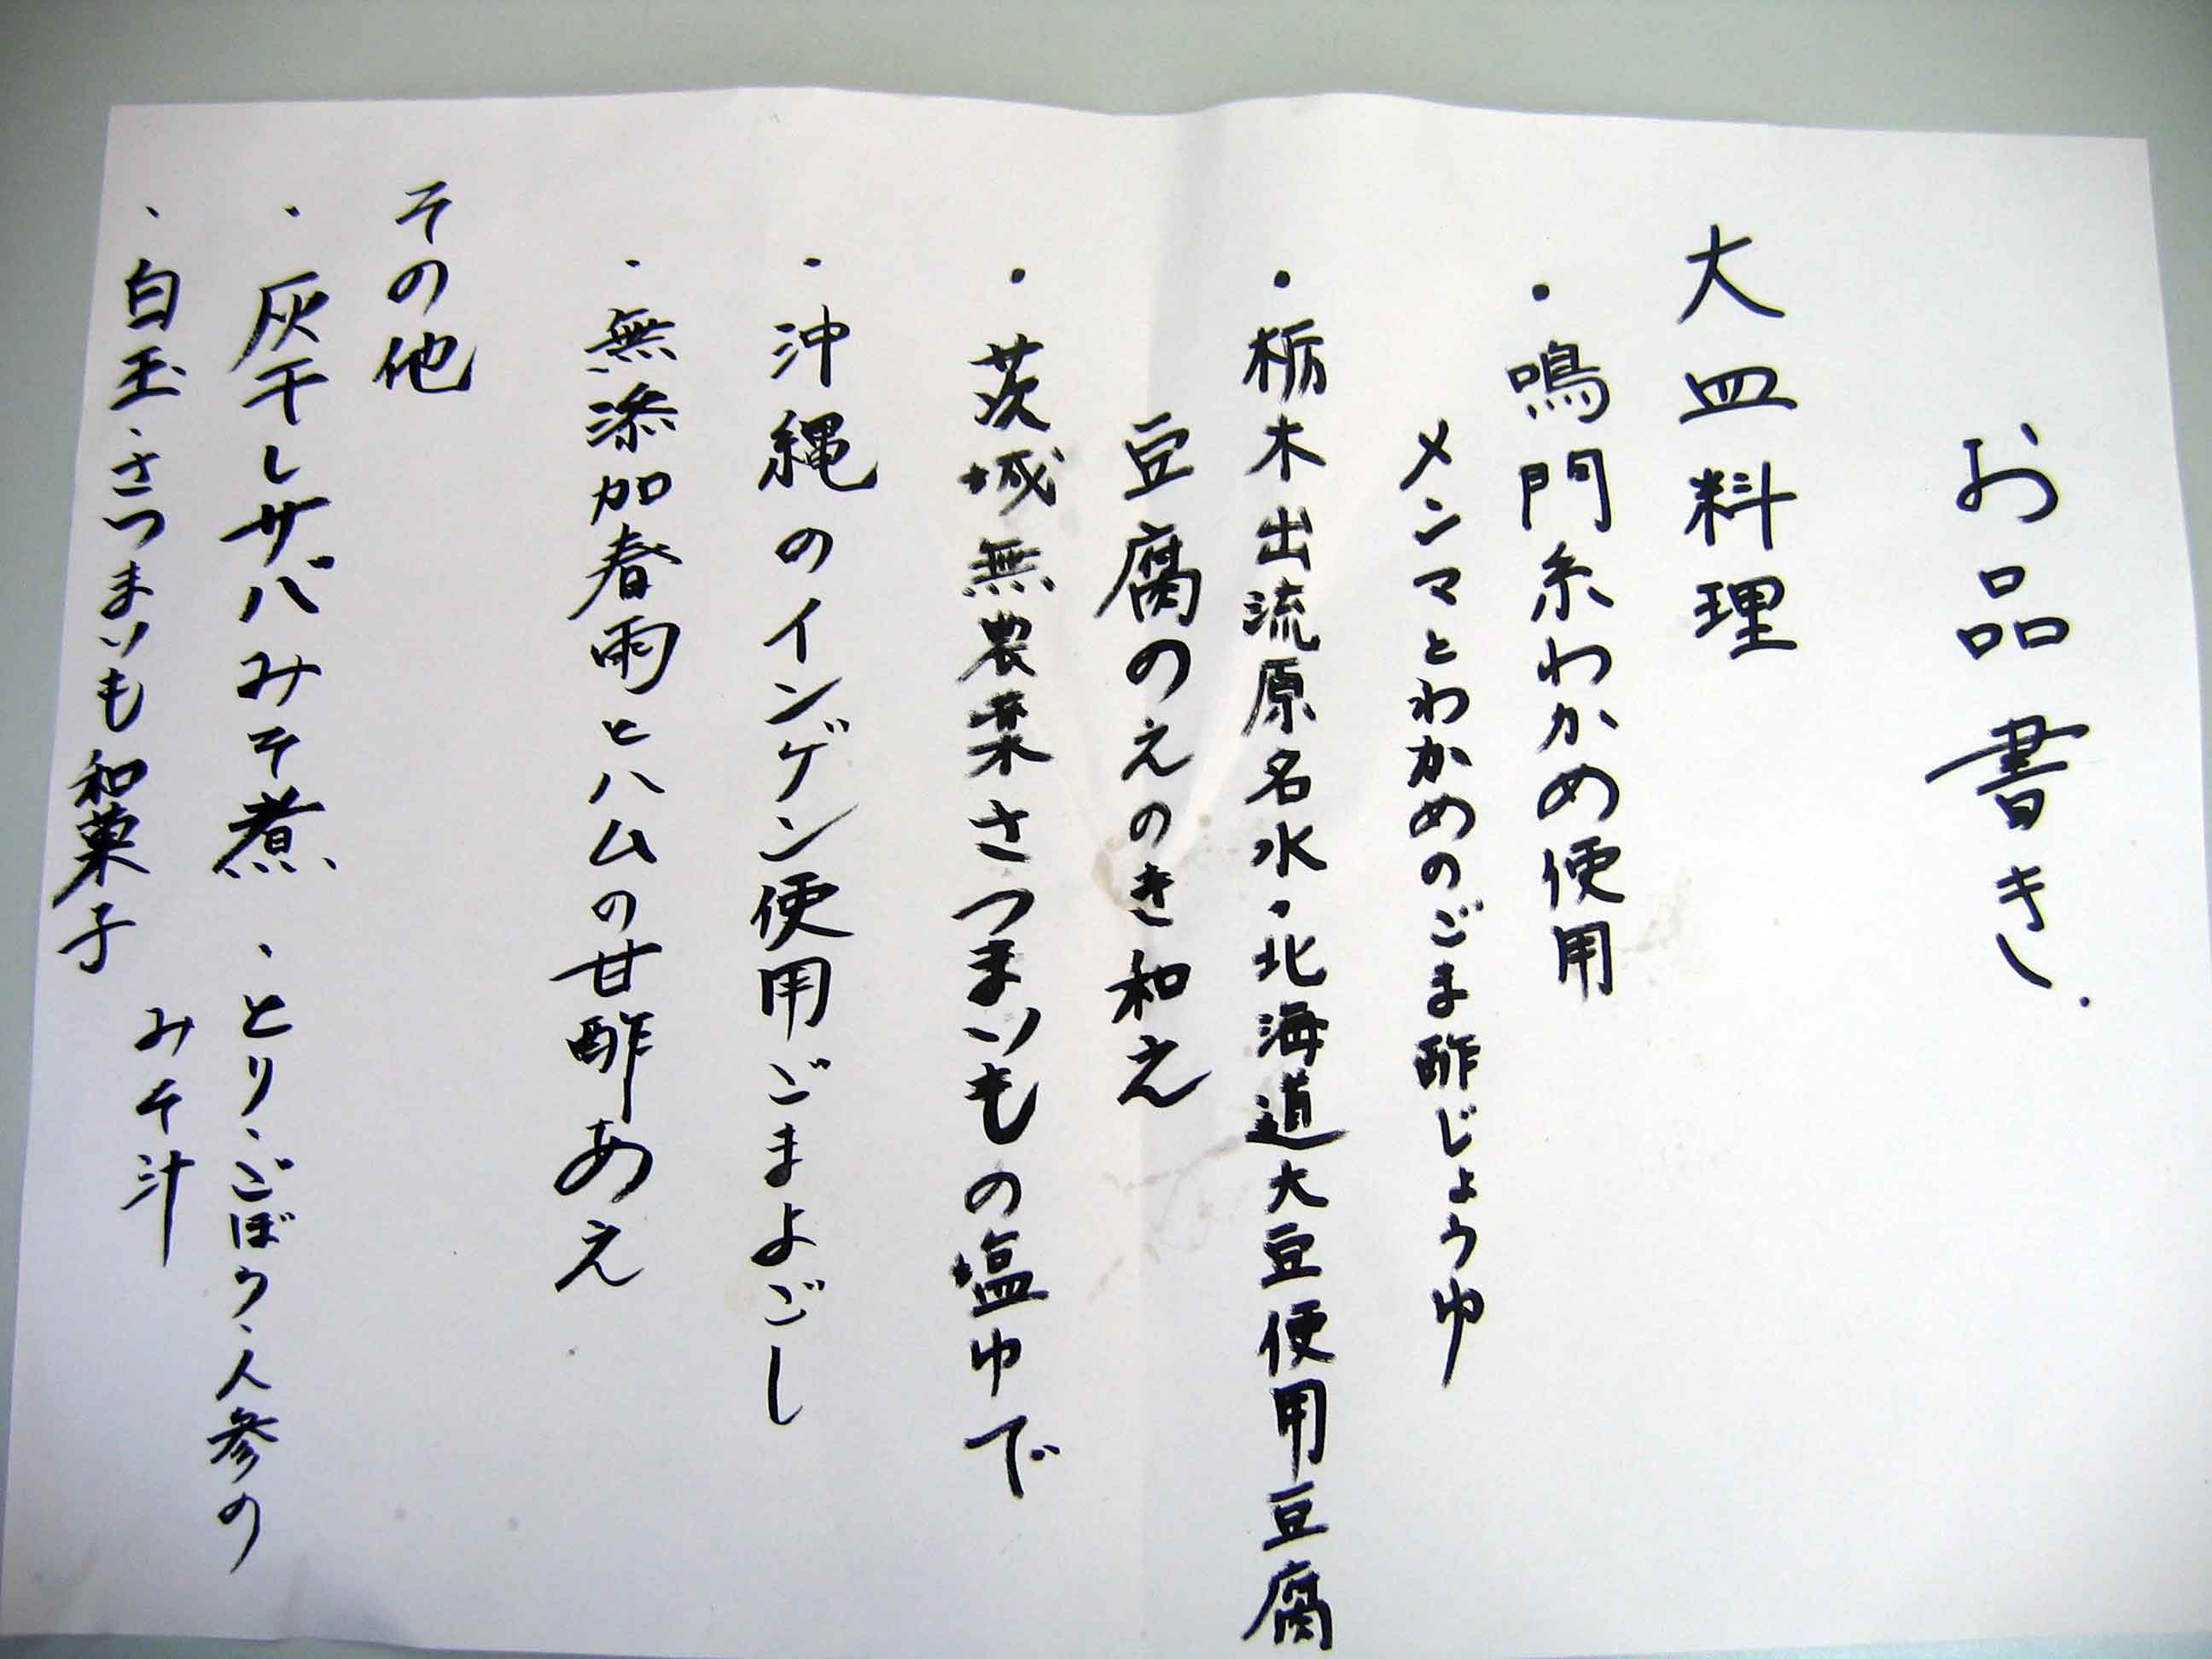 お品書き.
大皿料理
・鳴門糸わかめ使用
メンマとわかめのごま酢じょうゆ
・栃木出流原名水・北海道大豆使用豆腐
豆腐のえのき和え
・茨城無農薬さつまいもの塩ゆで
・沖縄のインゲン使用ごまよごし
・無添加春雨とハムの甘酢あえ
その他
・灰干しサバみそ煮 ・とり、ごぼう、人参の
みそ汁
・白玉、さつまいも和菓子